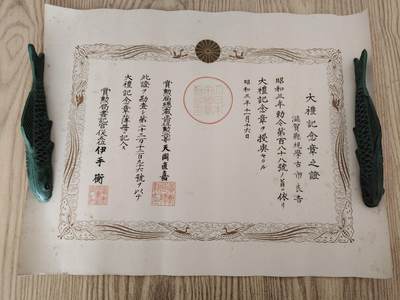 大禮記念章之證
滋賀縣視學古市良吉
昭和三年勅令第百八十八號ノ旨ニ依リ
大禮記念章ヲ授與セラル
昭和三年十一月十六日
賞勳局總裁從四位勳二等天岡直嘉
此證ヲ勘査シ第二十三百十二百六號ヲ以テ
大禮記念章簿册ニ記入ス
賞勳局書記官從五位伊手衛